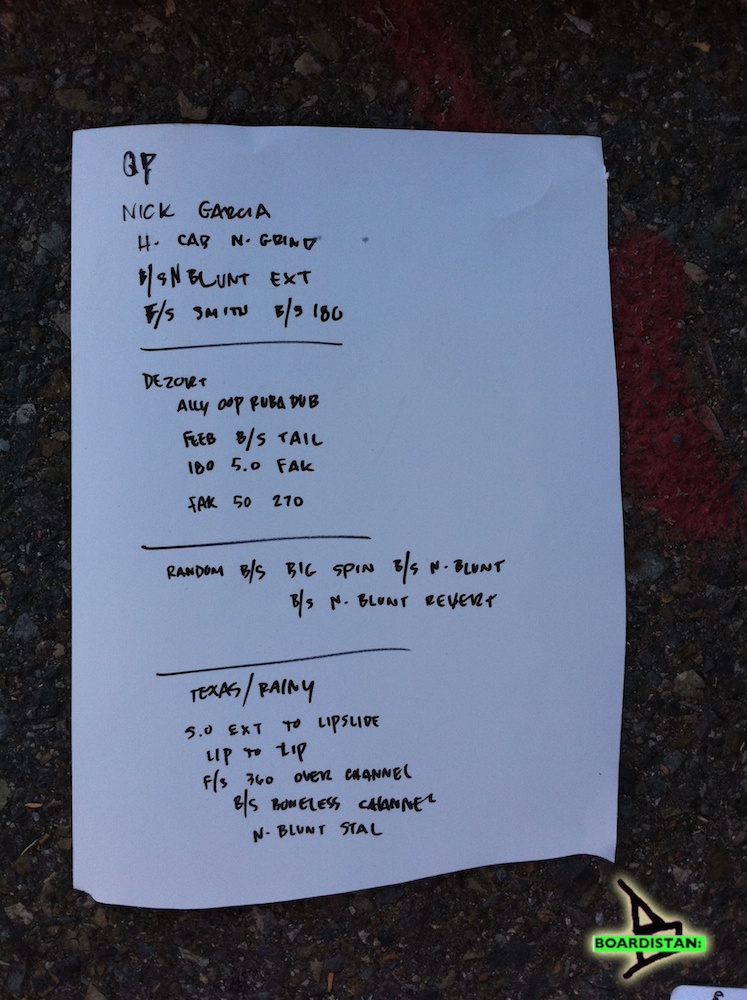 QP
NICK GARCIA
H. CAB N. GRIND
B/S N BLUNT EXT
F/S SMITH B/S 180
DEZORT
ALLY OOP RUBA DUB
FEEB B/S TAIL
180 5.0 FAK
FAK 50 270
RANDOM B/S BIG SPIN B/S N. BLUNT
B/S N. BLUNT REVERT
TEXAS/RAINY
5.0 EXT TO LIPSLIDE
LIP TO LIP
F/S 360 OVER CHANNEL
B/S BONELESS CHANNEL
N. BLUNT STAL
BOARDISTAN: